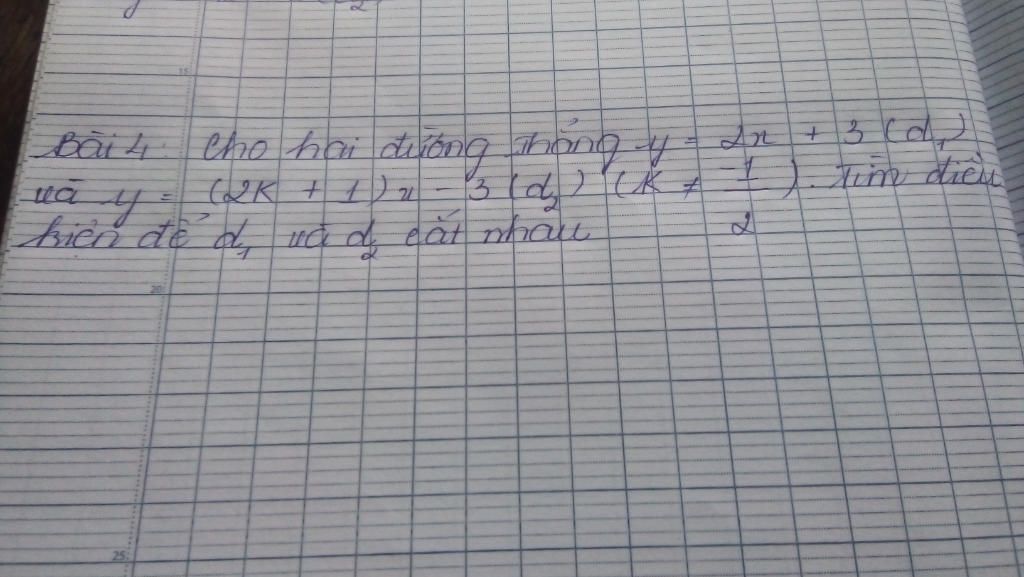 Bài 4: Cho hai đường thẳng y = 2x + 3 (d₁)
và y = (2K + 1)x - 3 (d₂) (K ≠ -1/2). Tìm điều
kiện để d₁ và d₂ cắt nhau
15
20
25